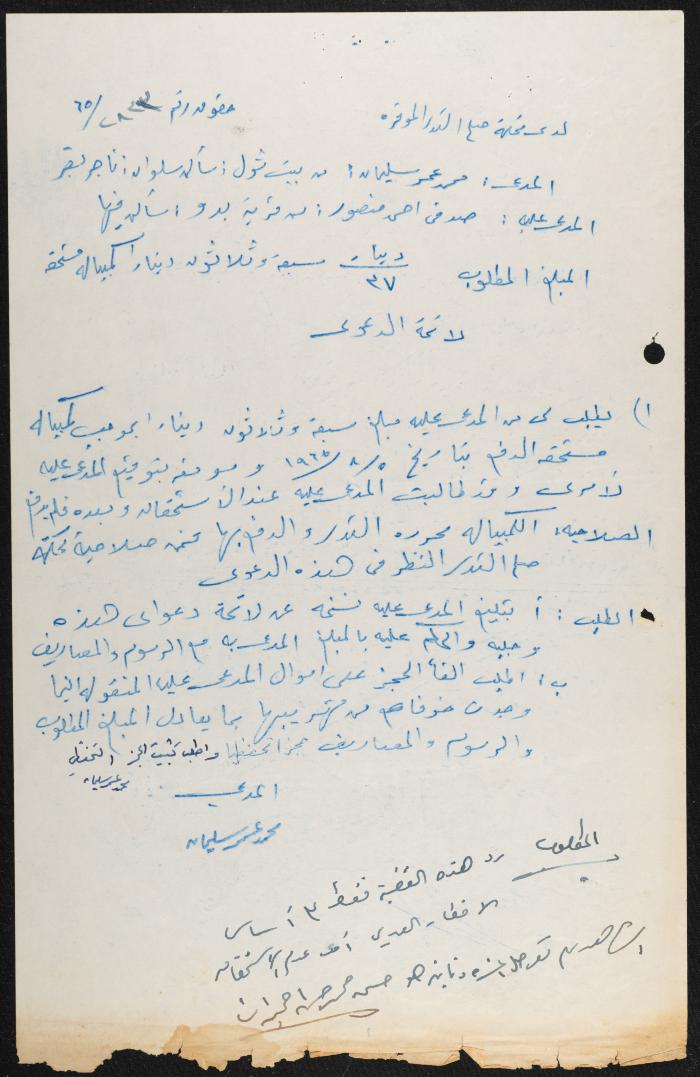 لدى محكمة صلح القدس الموقره
حقوق رقم /٦٥
المدعى : محمد عمر سليمان : من بيت ثول : سأكن سلوان : تاجر بقر
المدعى عليه : صدقى احمد منصور : من قرية بدو : سأكن فيها
المبلغ المطلوب ٣٧ دينار سبعة وثلاثون دينارا كمبياله مستحقه
لائحة الدعوى
١) يطلب لى من المدعى عليه مبلغ سبعة وثلاثون دينارا بموجب كمبياله
مستحقه الدفع بتاريخ ١٩٦٥/٨/٥ وموقعه بتوقيع المدعى عليه
لأمرى وقد طالبت المدعى عليه عند الأستحقاق وبعده فلم يدفع
الصلاحيه : الكمبياله محرره القدس والدفع بها ضمن صلاحية محكمة
صلح القدس النظر فى هذه الدعوى
الطلب : أ تبليغ المدعى عليه نسخه عن لائحة دعواى هذه
وجلبه والحكم عليه بالمبلغ المدعى به مع الرسوم والمصاريف
ب : اطلب القأ الحجز على اموال المدعى عليه المنقوله اينما
وجدت خوفا من تهريبها بما يعادل المبلغ المطلوب
والرسوم والمصاريف حجزا تحفظيا واطلب تثبيت الحجز التحفظي
محمد عمر سليمان
المدعي
محمد عمر سليمان
المطلوب رد هذه القضية فقط ٣ أساس
عدم الاستحقاق